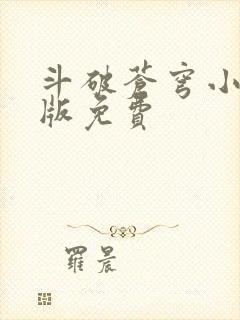 斗破蒼穹小
版免費
羅晨